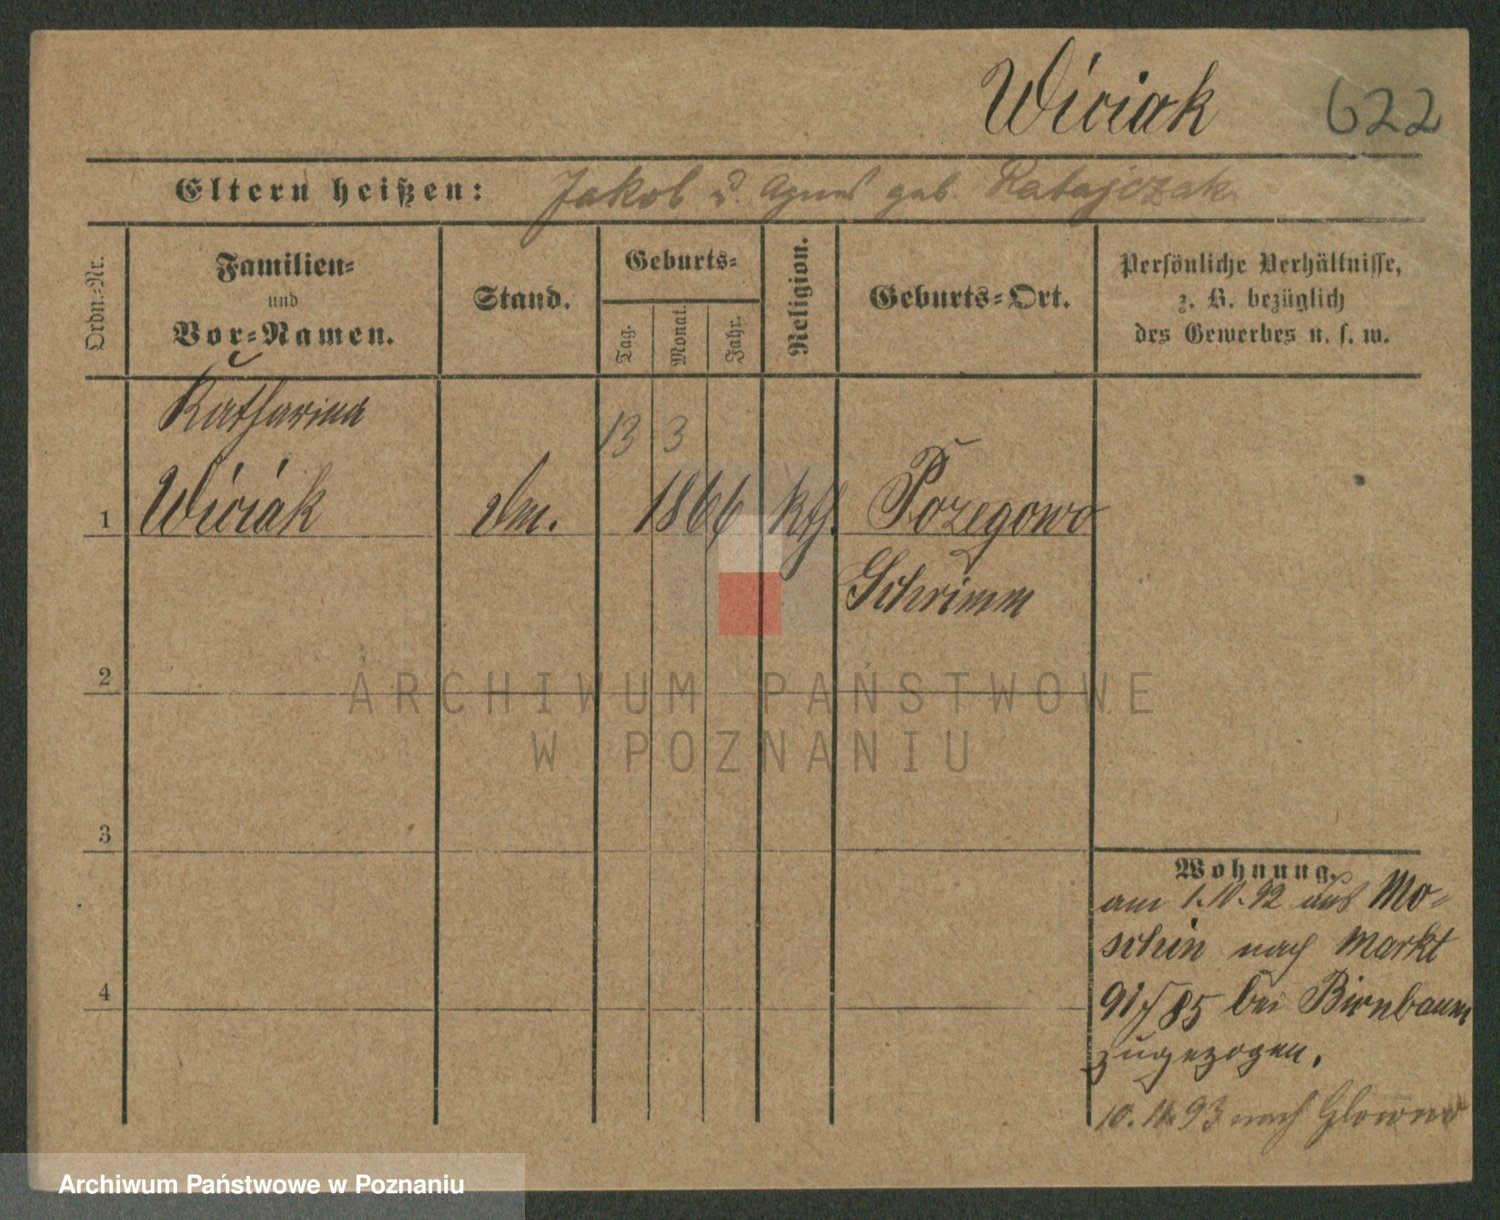 Wiciak 622
Eltern heißen: Jakob u. Agnes geb. Ratajczak
Ordn.-Nr.
Familien-
und
Vor-Namen.
Stand.
Geburts-
Tag.
Monat.
Jahr.
Religion.
Geburts-Ort.
Persönliche Verhältnisse,
z. B. bezüglich
des Gewerbes u. s. w.
Katharina
13 3
1 Wiciak 1866 kth. Pożegowo
Schrimm
2
3
4
Wohnung.
am 1.10.92 aus Mo-
schin nach Markt
91/85 bei Birnbaum
zugezogen.
93 nach Glowno
ARCHIWUM PAŃSTWOWE
W POZNANIU
Archiwum Państwowe w Poznaniu